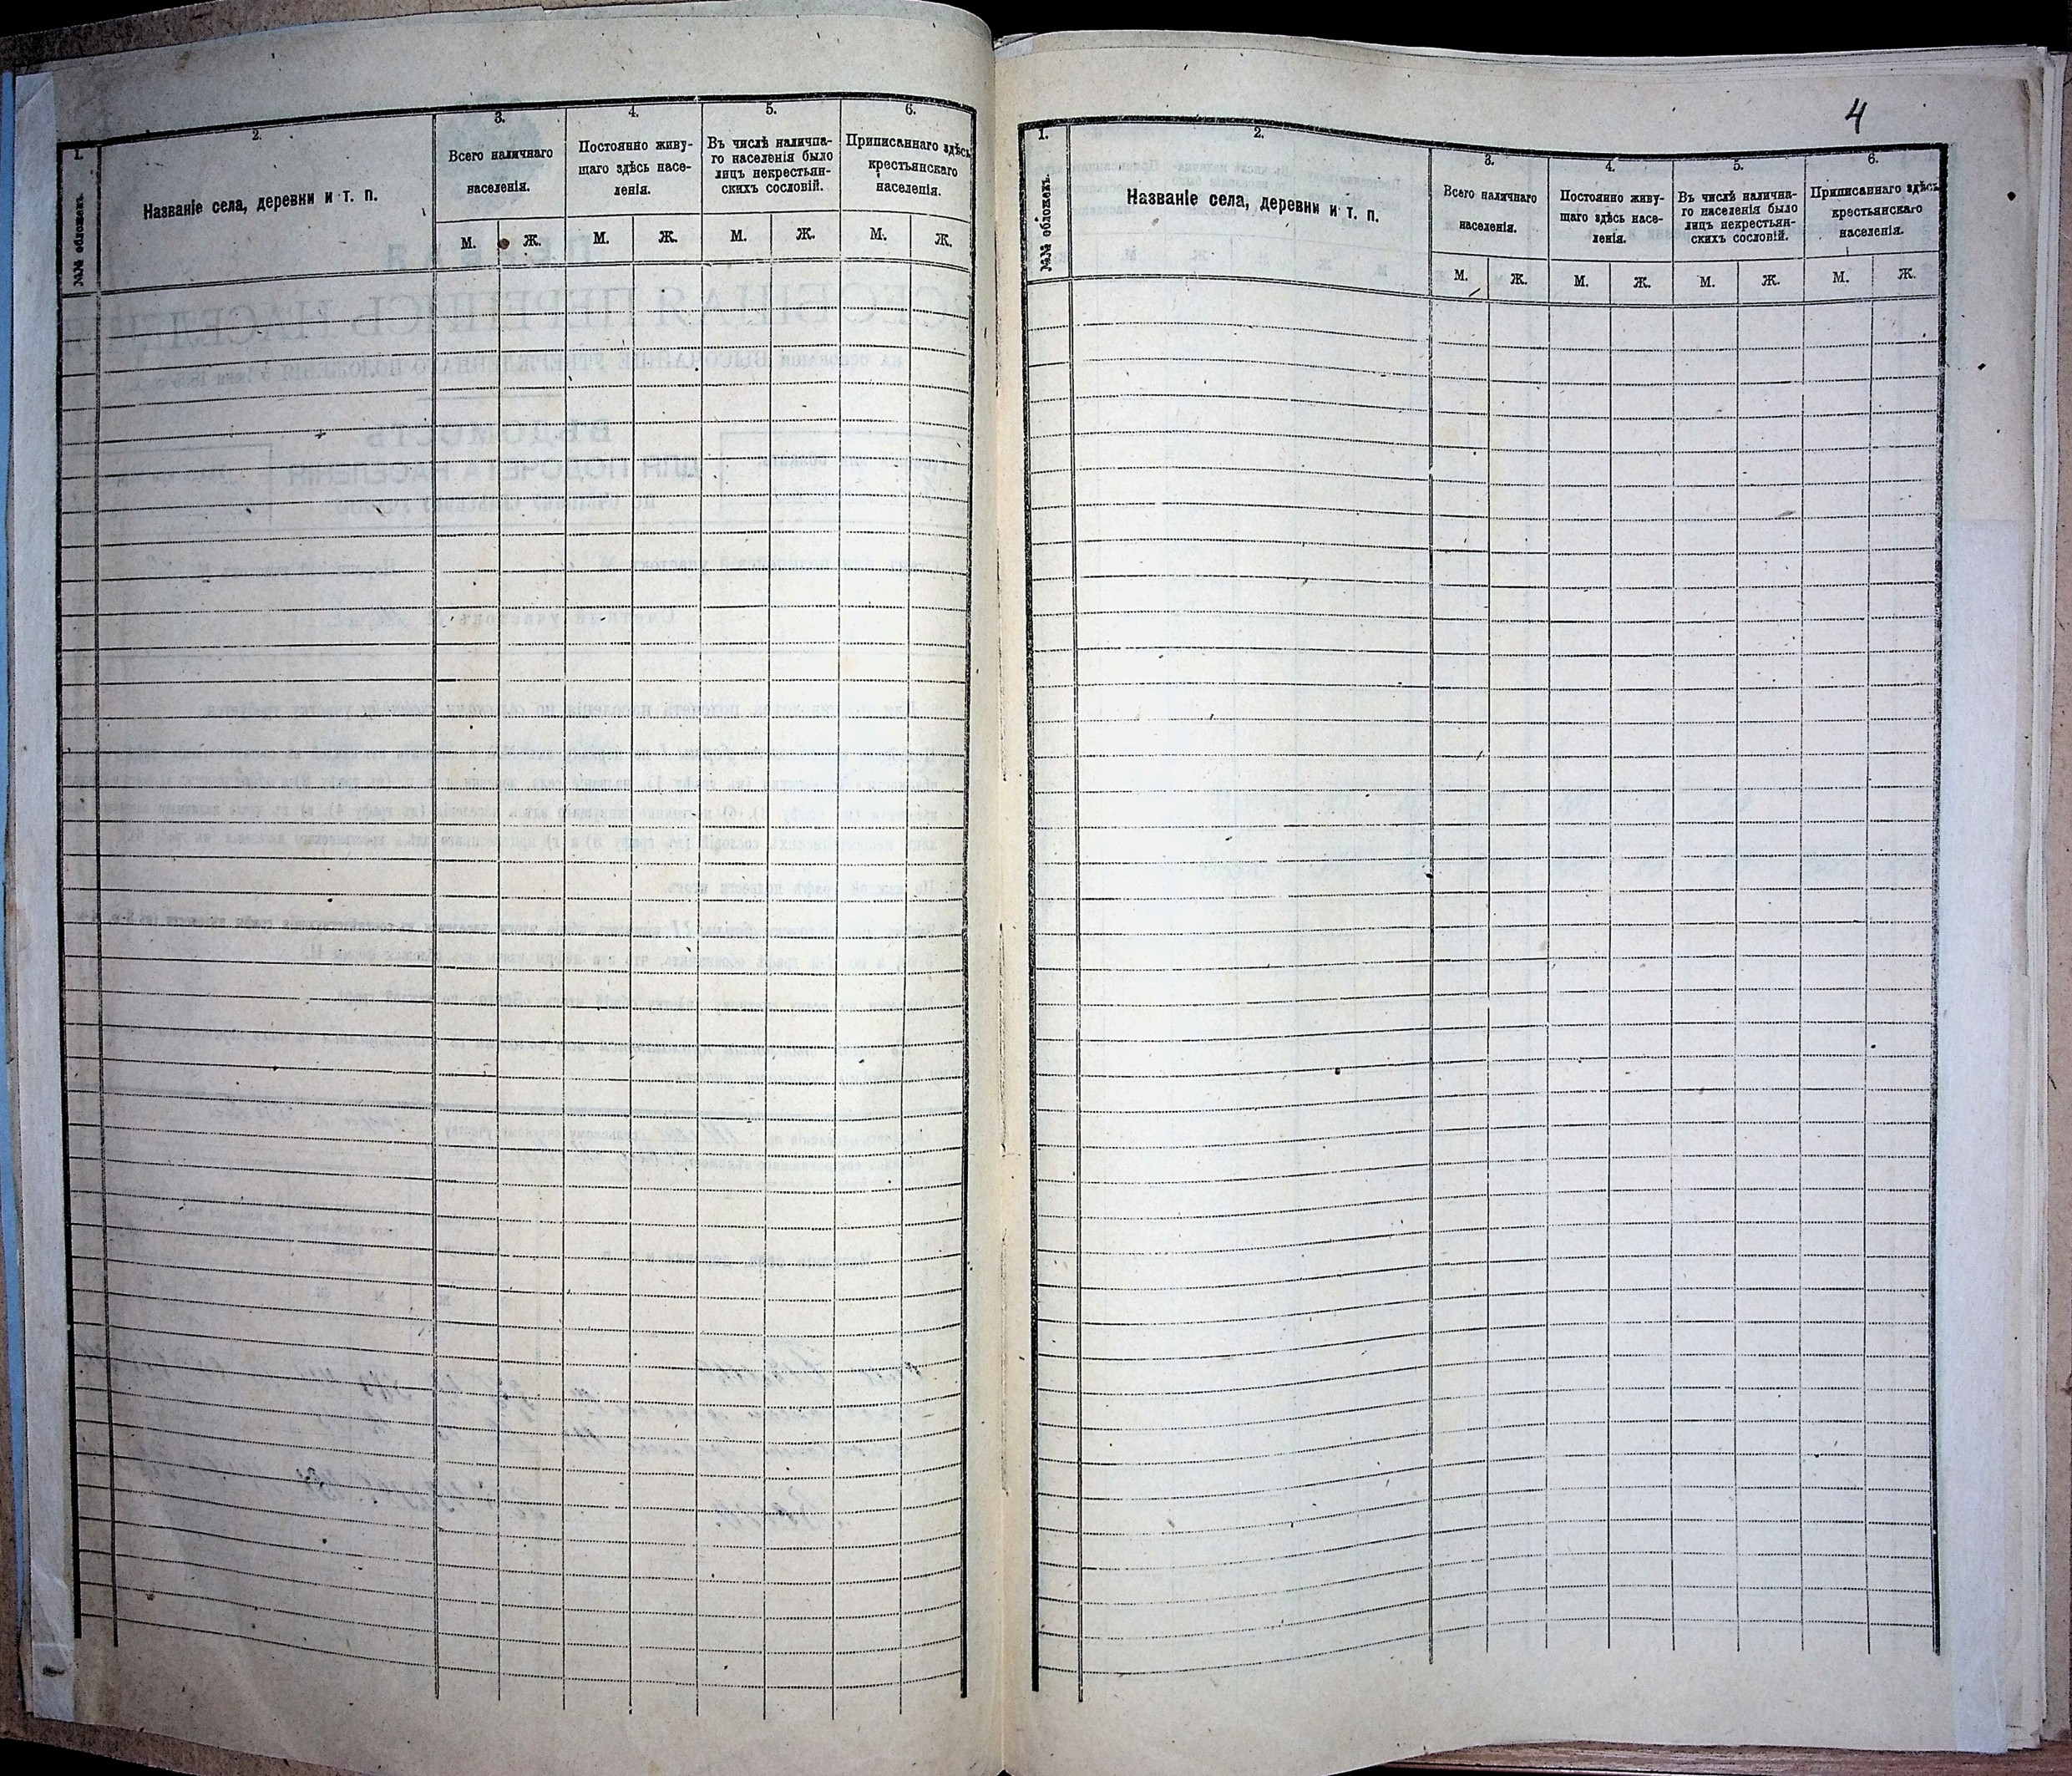 1.
2.
3.
4.
5.
6.
№№ обложекъ.
Названіе села, деревни и т. п.
Всего наличнаго
населенія.
Постоянно живу-
щаго здѣсь насе-
ленія.
Въ числѣ налична-
го населенія было
лицъ некрестьян-
скихъ сословій.
Приписаннаго здѣсь
крестьянскаго
населенія.
М. Ж. М. Ж. М. Ж. М. Ж.
4
1.
2.
3.
4.
5.
6.
№№ обложекъ.
Названіе села, деревни и т. п.
Всего наличнаго
населенія.
Постоянно живу-
щаго здѣсь насе-
ленія.
Въ числѣ налична-
го населенія было
лицъ некрестьян-
скихъ сословій.
Приписаннаго здѣсь
крестьянскаго
населенія.
М. Ж. М. Ж. М. Ж. М. Ж.